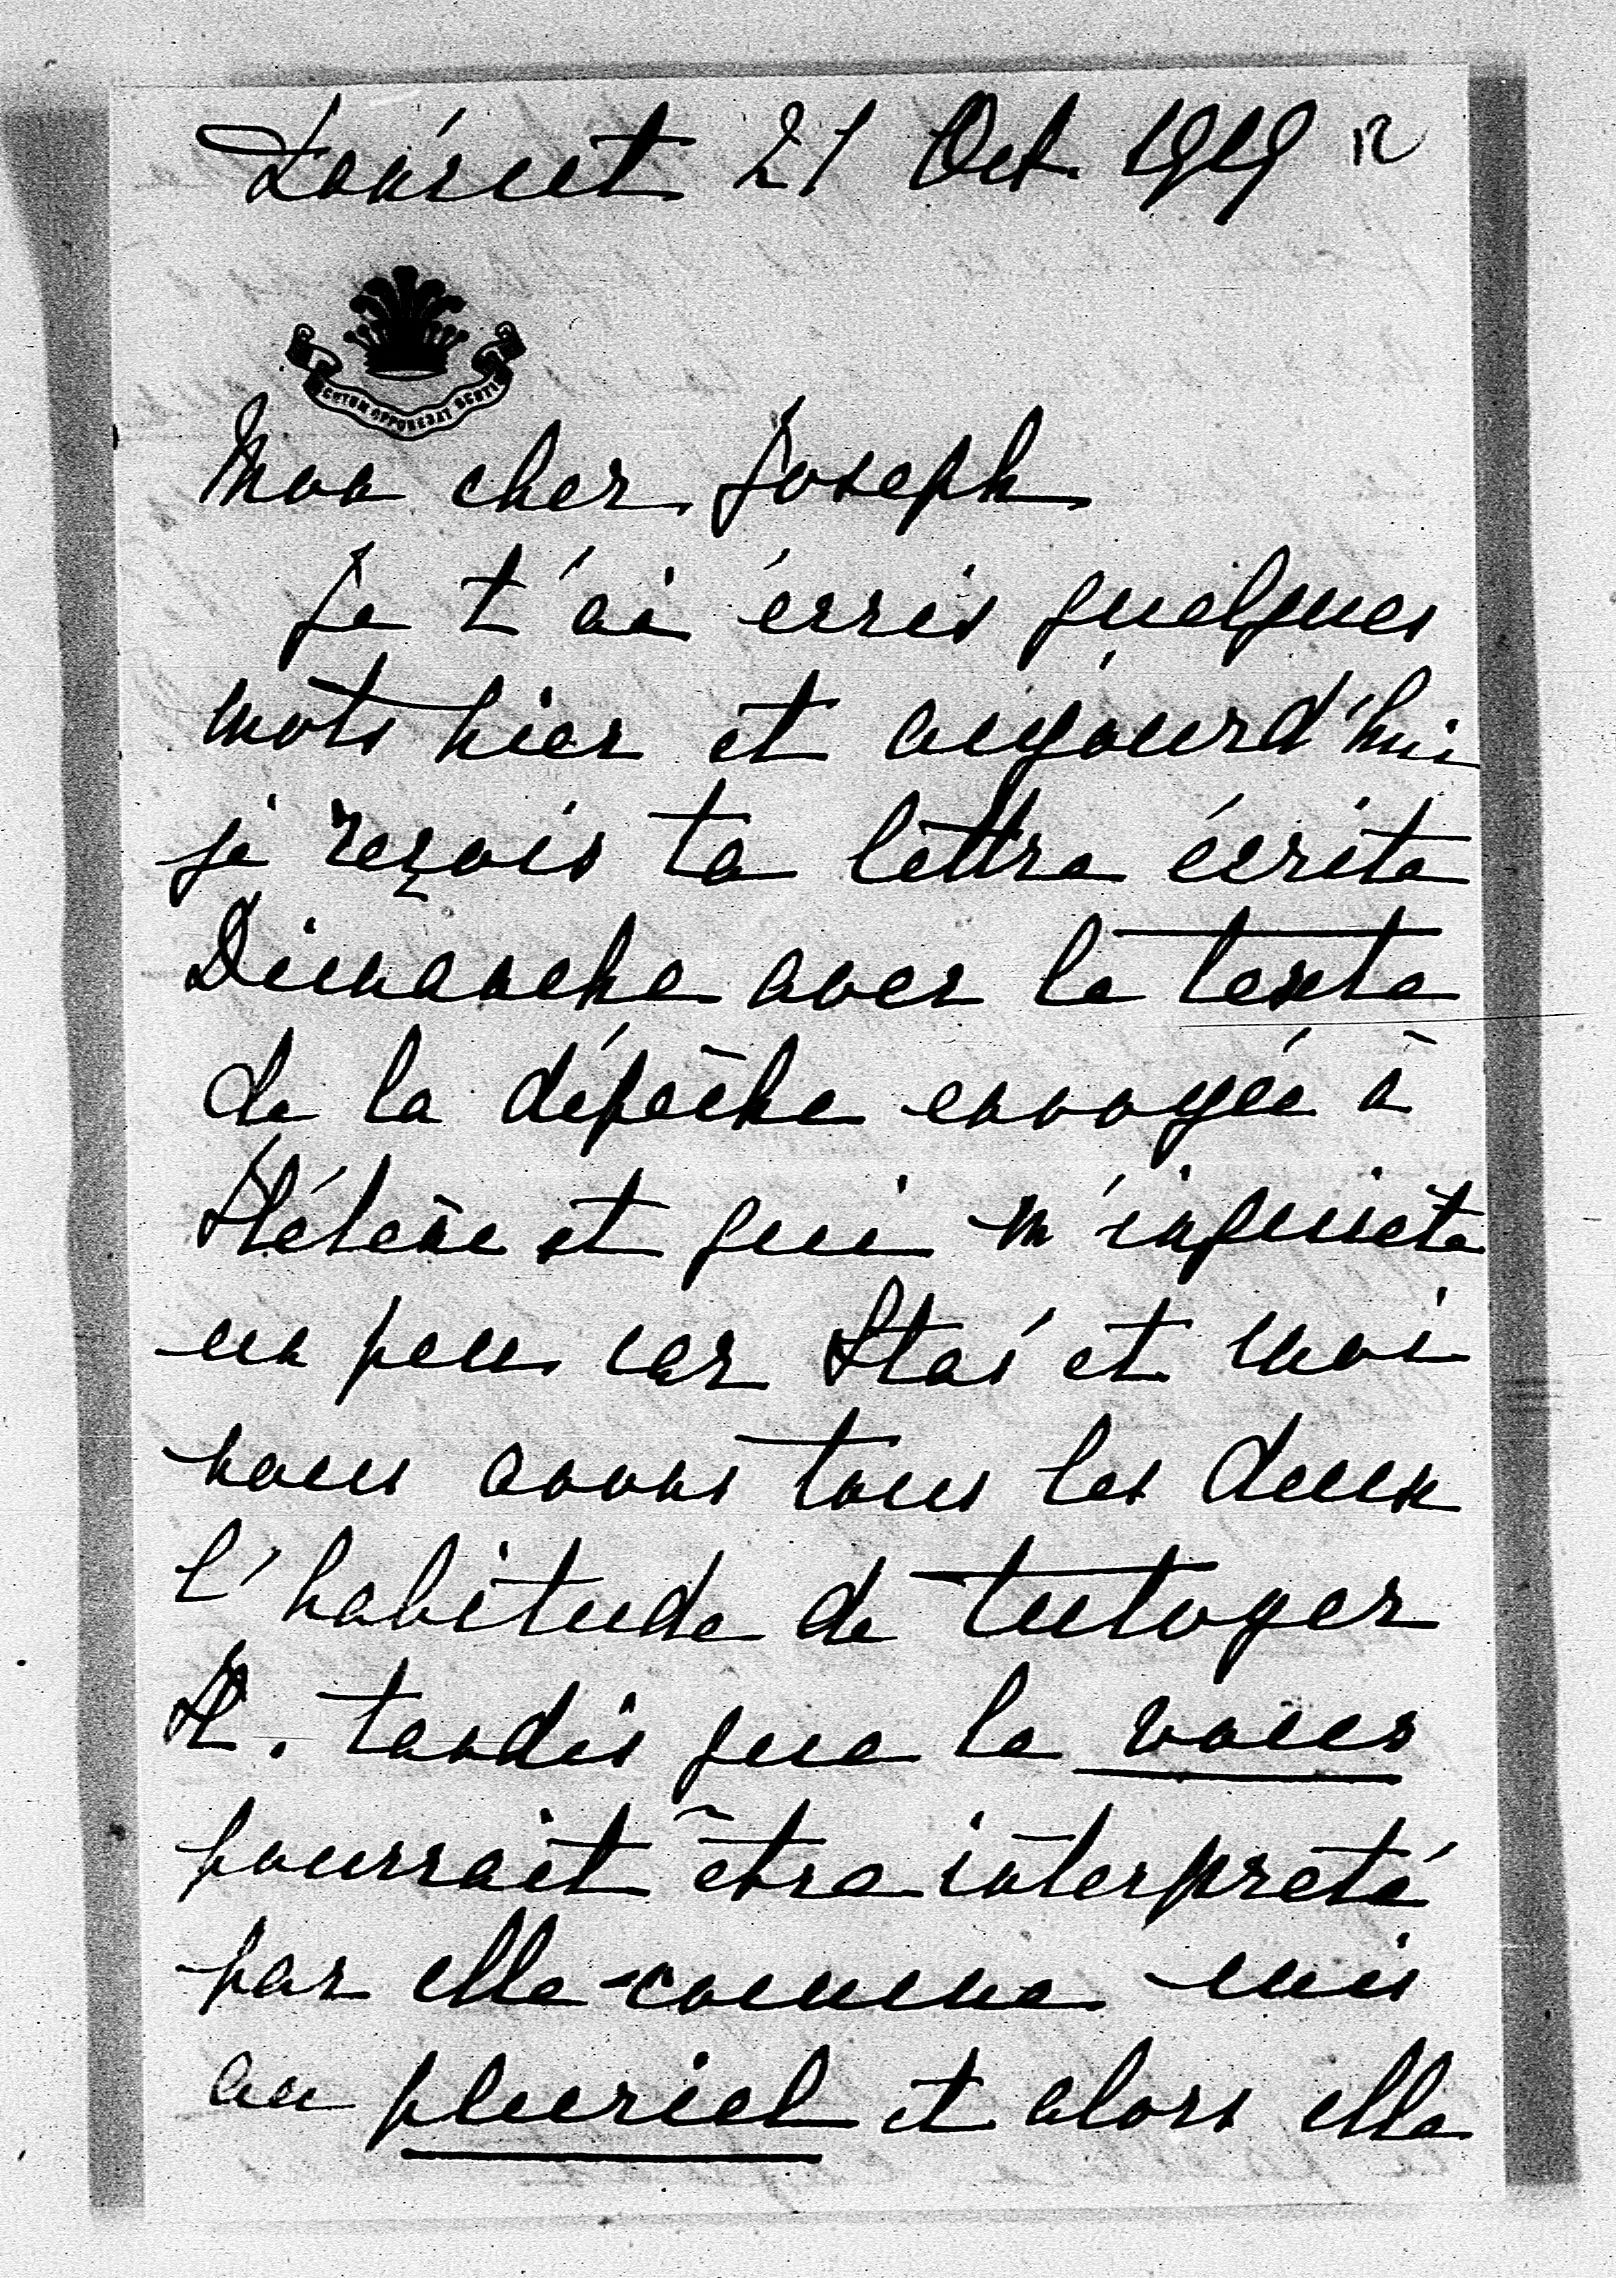 Łańcut 21 Oct. 1919 12
SCUTUM OPPONEBAT SCUTIS
Mon cher Joseph
Je t'ai écris quelques
mots hier et aujourd'hui
je reçois ta lettre écrite
Dimanche avec le texte
de la dépêche envoyée à
Hélène et qui m'inquiète
un peu car Staś et moi
nous avons tous les deux
l'habitude de tutoyer
H. tandis que le vous
pourrait être interpreté
par elle comme mis
au pluriel et alors elle